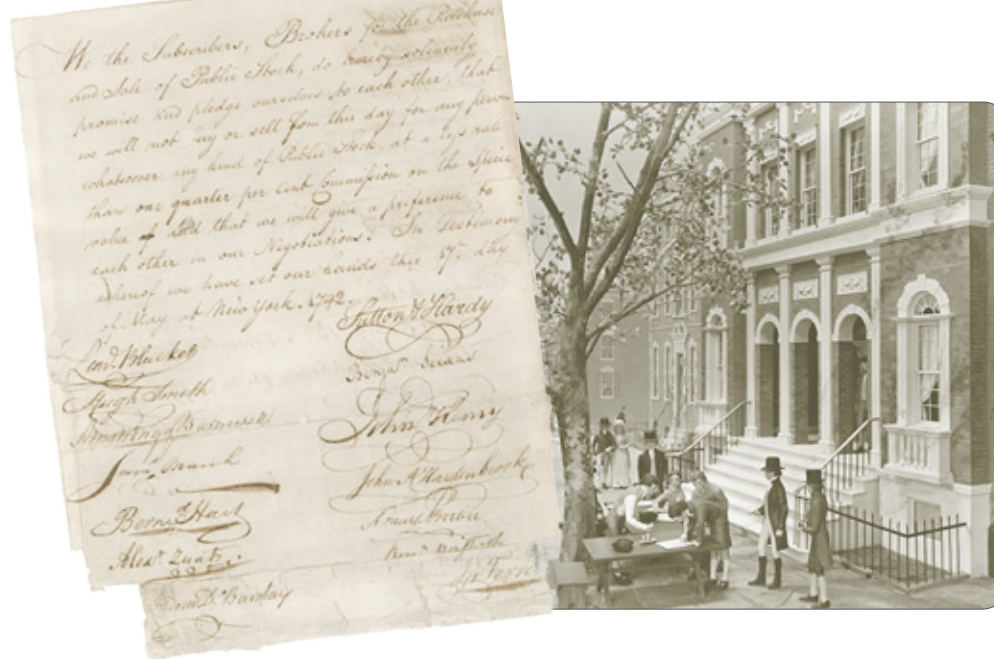 We the Subscribers, Brokers for the Purchase
and Sale of Public Stock, do hereby solemnly
promise and pledge ourselves to each other, that
we will not buy or sell from this day for any person
whatsoever, any kind of Public Stock, at a less rate
than one quarter per Cent Commission on the Specie
value of and that we will give a preference to
each other in our Negotiations. In Testimony
whereof we have set our hands this 17th day
of May at New York. 1792.
Sutton & Hardy
Leond. Bleecker
Hugh Smith
Armstrong & Barnewall
John Henry
March
John A Hardenbrook
Bernd. Hart
Alexr. Zuntz
Barclay